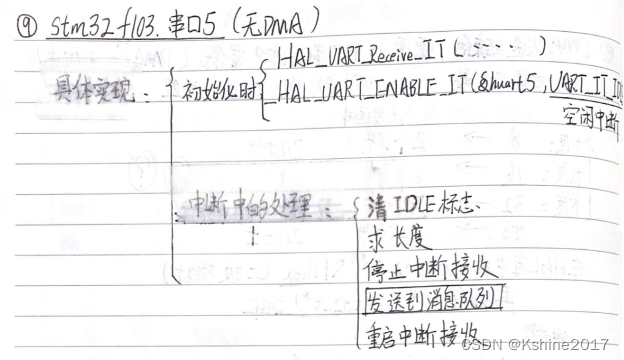 ⑨ stm32f103.串口5（无DMA）
具体实现：
初始化时
HAL_UART_Receive_IT(·····)
_HAL_UART_ENABLE_IT(&huart5,UART_IT_ID
空闲中断
中断中的处理：
清IDLE标志、
求长度
停止中断接收
发送到消息队列
重启中断接收
CSDN @Kshine2017